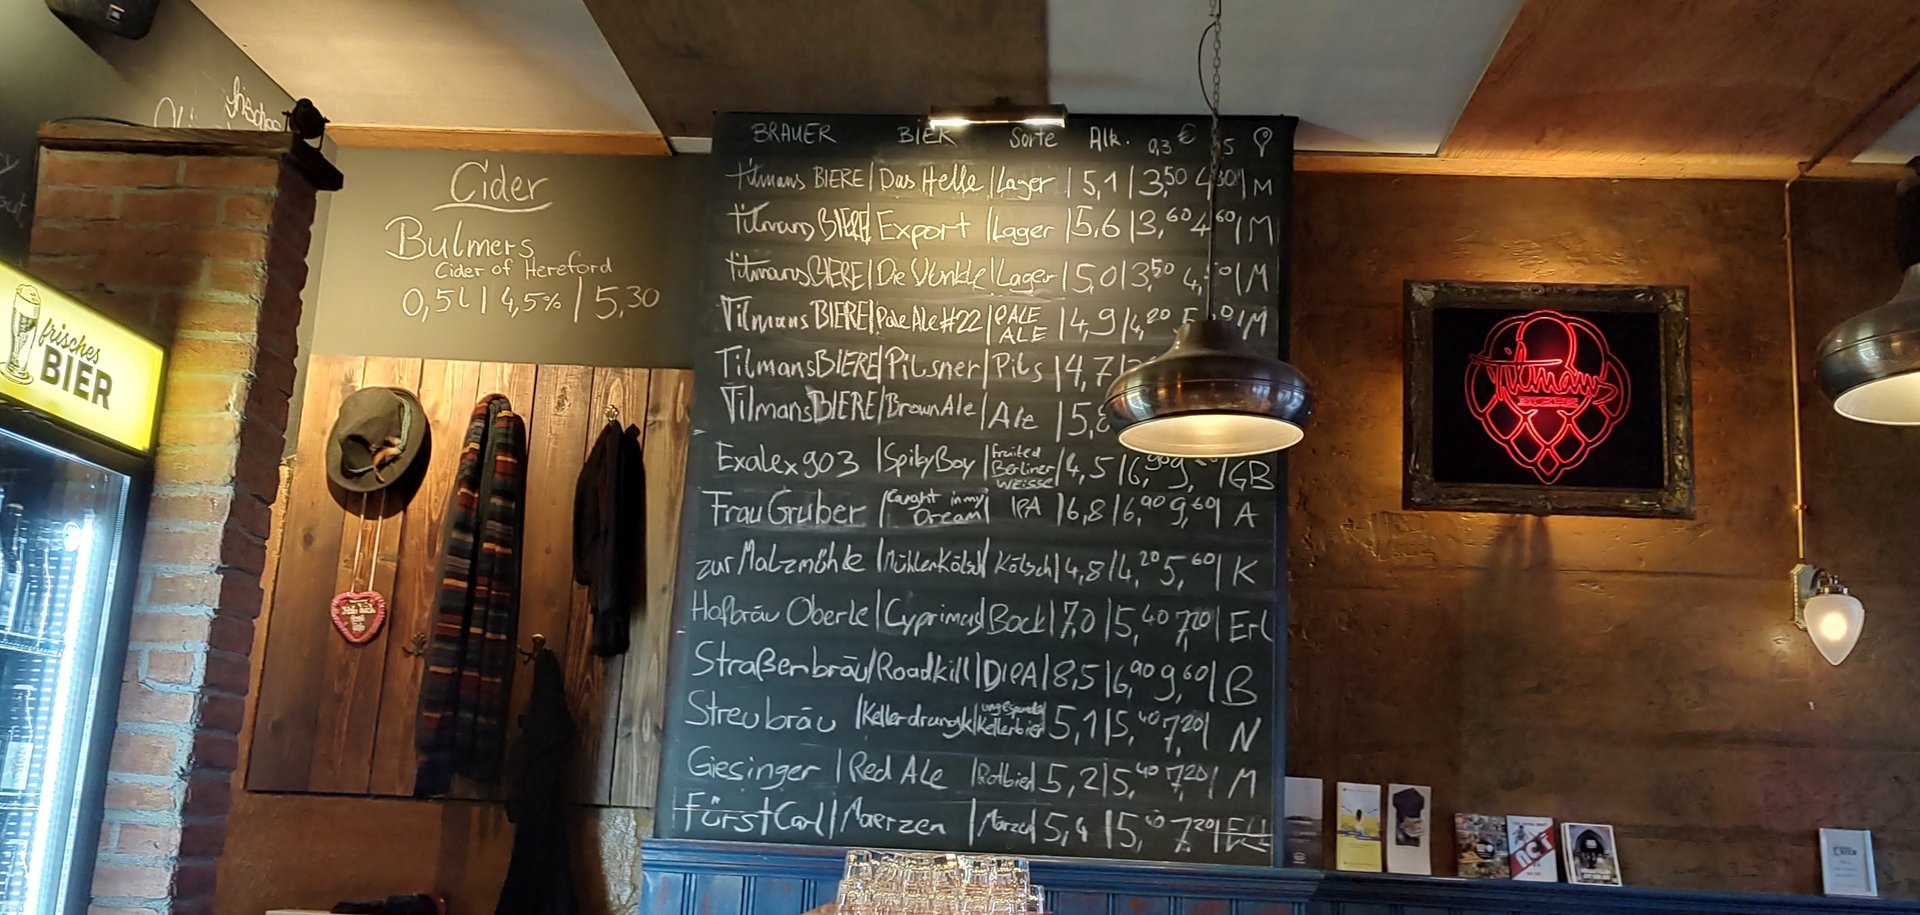 frisches
frisches
BIER
Cider
Bulmers
Cider of Hereford
0,5l | 4,5% | 5,30
BRAUER BIER Sorte Alk. 0,3 € 5
tilmans BIERE | Das Helle | Lager | 5,1 | 3,50 4 | M
tilmans BIERE | Export | Lager | 5,6 | 3,60 4 60 | M
tilmans BIERE | Die Dunkle | Lager | 5,0 | 3,50 4, | M
Tilmans BIERE | Pale Ale #22 | PALE ALE | 4,9 | 4,20 5 | M
Tilmans BIERE | Pilsner | Pils | 4,7 |
Tilmans BIERE | Brown Ale | Ale | 5,
Exalex903 | Spiky Boy | Fruited Berliner WEISSE | 4,5 | 6,90 9, | GB
Frau Gruber | Caught in my Dream | IPA | 6,8 | 6,90 9,60 | A
zur Malzmühle | Mühlen Kölsch | Kölsch | 4,8 | 4,20 5,60 | K
Hofbräu Oberle | Cyprimus | Bock | 7,0 | 5,40 7,20 | Erl
Straßenbräu | Roadkill | DIPA | 8,5 | 6,90 9,60 | B
Streubräu | Kellerdrungk | ungespundet Kellerbier | 5,1 | 5,40 7,20 | N
Giesinger | Red Ale | Rotbier | 5,2 | 5,40 7,20 | M
Fürst Carl | Maerzen | Märzen | 5,4 | 5,40 7,20 |
Tilmans
BIERE